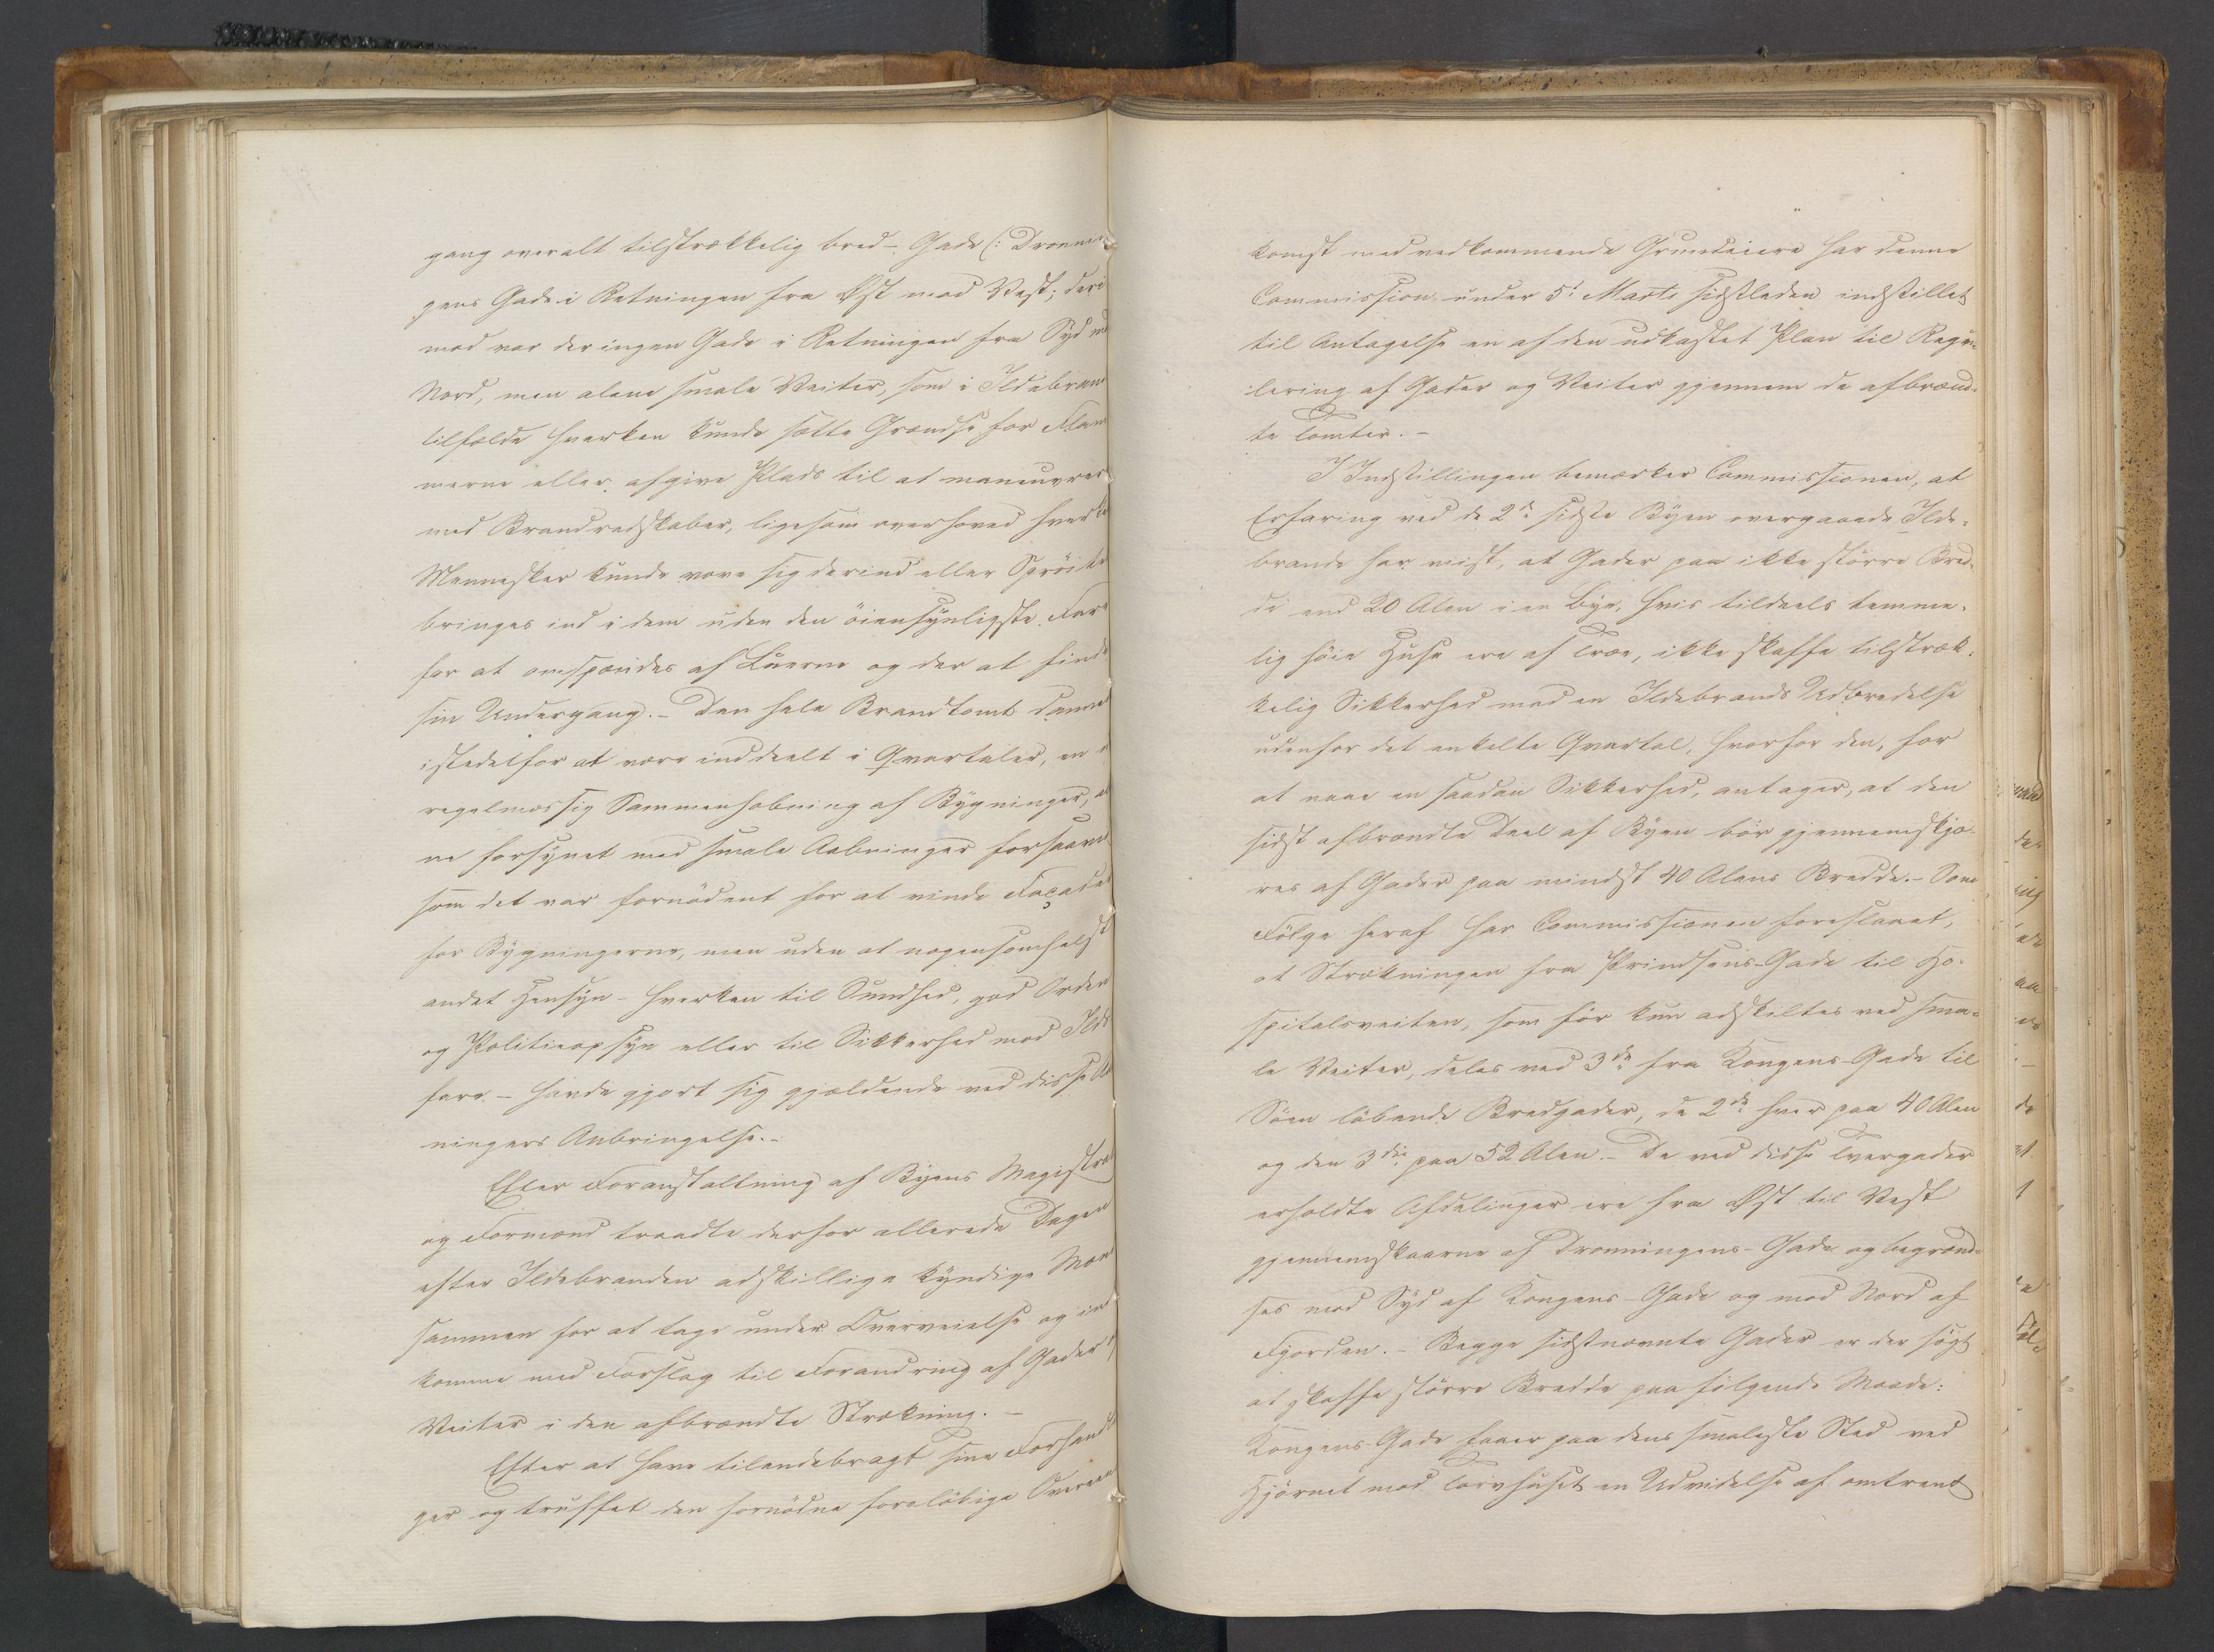 gang overalt tilstrækkelig bred – Gade (: Dronnin
gens Gade i Retningen fra Øst mod Vest; deri
mod var der ingen Gade i Retningen fra Syd mod
Nord, men alene smale Veiter, som i Ildebrand
tilfælde hverken kunde sætte Grændse for Flam
merne eller afgive Plads til at maneuvrere
med Brandredskaber, ligesom overhoved hverke
Mennesker kunde vove sig derind eller Sprøite
bringes ind i dem uden den øiensynligste Fare
for at omspændes af Luerne og der at finde
sin Undergang. – Den hele Brandtomt danned
istedetfor at være inddeelt i Qvartaler, en
regelmæssig Sammenhobning af Bygninger,
ne forsynet med smale Aabninger forsaavid
som det var fornødent for at vinde Façader
for Bygningerne, men uden at nogensomhelst
andet Hensyn – hverken til Sundhed, god Orden
og Politieopsyn eller til Sikkerhed mod Ilds
fare – havde gjort sig gjældende ved disse Aab
ningers Anbringelse. –
Efter Foranstaltning af Byens Magistrat
og Formænd traadte derfor allerede Dagen
efter Ildebranden adskillige kyndige Mænd
sammen for at tage under Overveielse og ind
komme med Forslag til Forandring af Gader og
Veiter i den afbrændte Strækning. –
Efter at have tilendebragt sine Forhandl
ger og truffet den fornødne foreløbige Overeens
komst med vedkommende Grundeiere har denne
Commission under 5te Marts sidstleden indstillet
til Antagelse en af den udkastet Plan til Regu-
lering af Gader og Veiter gjennem de afbrænd-
te Tomter. –
I Indstillingen bemærker Commissionen, at
Erfaring ved de 2de sidste Byen overgaaede Ilde-
brande har viist, at Gader paa ikke større Bred-
de end 20 Alen i en Bye, hvis tildeels temme-
lig høie Huse ere af Træe, ikke skaffe tilstræk-
kelig Sikkerhed mod en Ildebrands Udbredelse
udenfor det enkelte Qvartal, hvorfor den, for
at naae en saadan Sikkerhed, antager, at den
sidst afbrændte Deel af Byen bør gjennemskjæ-
res af Gader paa mindst 40 Alens Bredde. – Som
Følge heraf har Commissionen foreslaaet,
at Strækningen fra Prindsens-Gade til Ho-
spitalsveiten, som før kun adskiltes ved sma-
le Veiter, deles ved 3de fra Kongens-Gade til
Søen løbende Bredgader, de 2de hver paa 40 Alen
og den 3die paa 52 Alen. – De ved disse Tvergader
erholdte Afdelinger ere fra Øst til Vest
gjennemskaarne af Dronningens-Gade og begrænd-
ses mod Syd af Kongens-Gade og mod Nord af
Fjorden. – Begge sidstnævnte Gader er der søgt
at skaffe større Bredde paa følgende Maade:
Kongens-Gade faaer paa dens smaleste Sted ved
Hjørnet mod Torvhuset en Udvidelse af omtrent